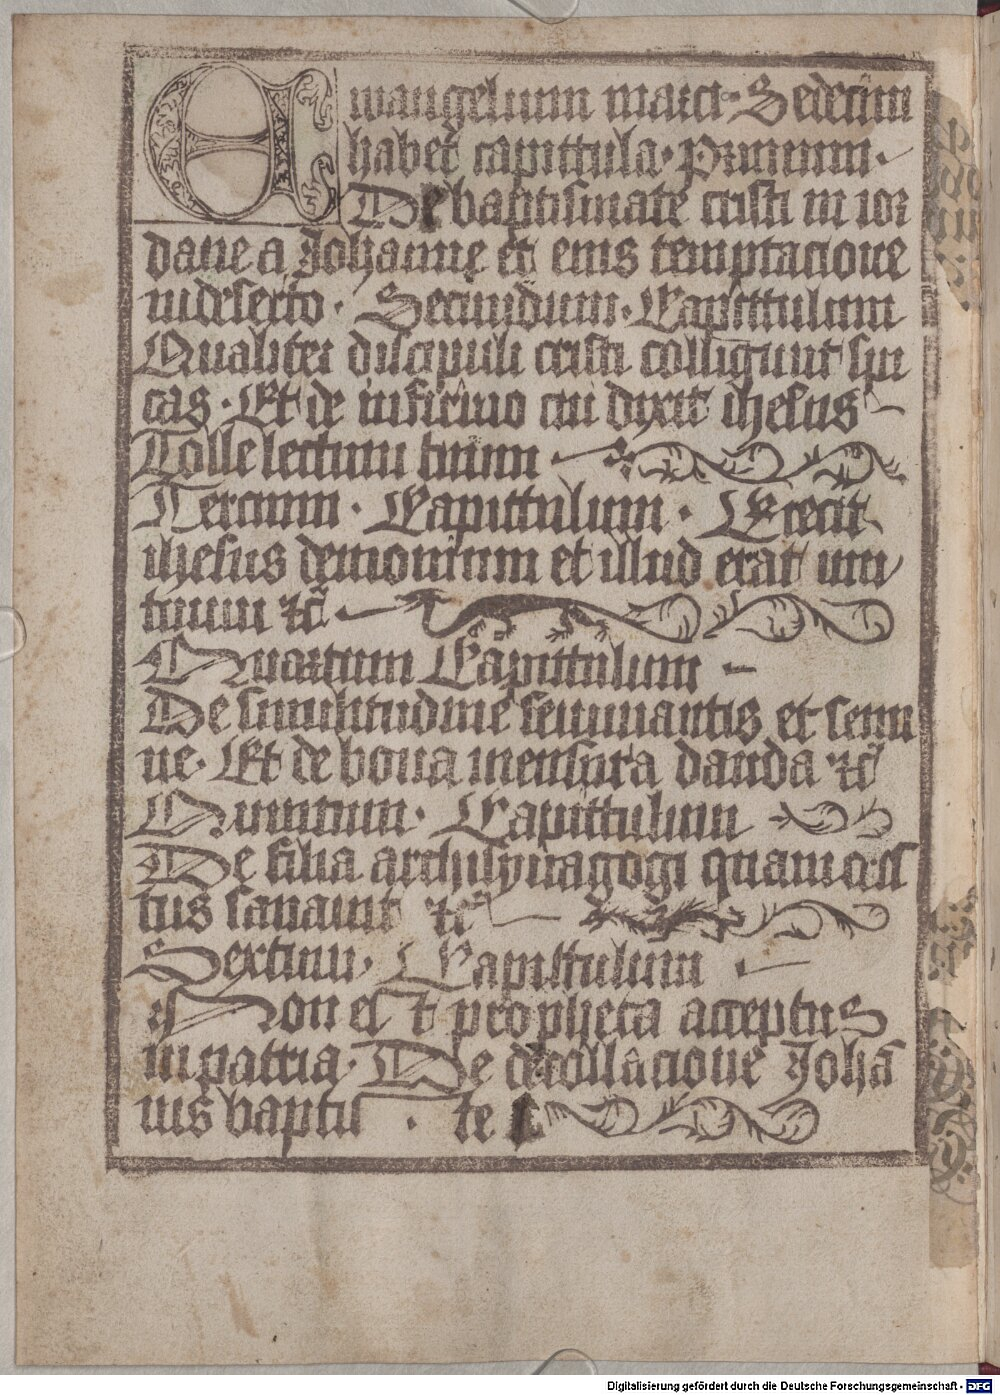 Ewangelium marci · Sedecim
habet capittula · Primum ·
De baptismate cristi in ior
dane a Johanne et eius temptacione
in deserto · Secundum · Capittulum
Qualiter discipuli cristi colligunt spi
cas · Et de infirmo cui dixit ihesus
Tolle lectum tuum
Tercium · Capittulum · Eiecit
ihesus demonium et illud erat
mutum ⁊c̄
Quartum Capittulum
De similitudine seminantis et semi
ne · Et de bona mensura danda ⁊c̄
Quintum · Capittulum
De filia archisynagogi quam cris
tus sanauit ⁊c̄
Sextum · Capittulum
Non est propheta acceptus
in patria · De decollacione Johā
nis baptis · te
Digitalisierung gefördert durch die Deutsche Forschungsgemeinschaft - DFG